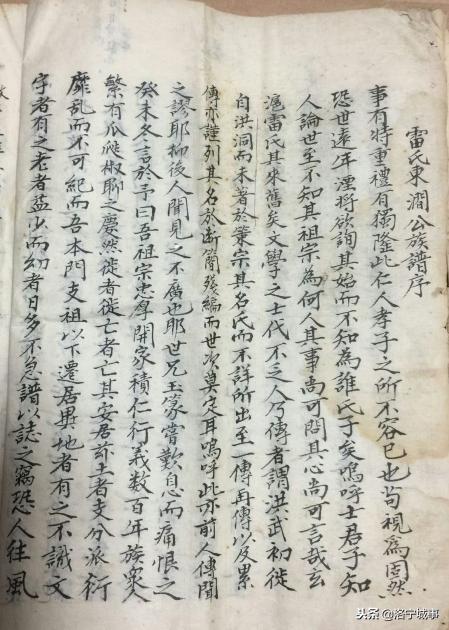 雷氏東澗公族譜序
事有特重禮有獨隆此仁人孝子之所不容已也苟視為固然
恐世遠年湮將欲詢其始而不知為誰氏子矣嗚呼士君子知
人論世至不知其祖宗為何人其事尚可問其心尚可言哉玄
滬雷氏其來舊矣文學之士代不乏人乃傳者謂洪武初徙
自洪洞而未著於業宗其名氏而不詳所出至一傳再傳以及累
傳亦謹列其名於斷簡殘編而世次莫定耳嗚呼此亦前人傳聞
之謬耶抑後人聞見之不廣也耶世兄玉篆嘗歎息而痛恨之
癸未冬言於予曰吾祖宗忠厚開家積仁行義數百年族衆人
繁有瓜瓞椒聊之慶然徙者徙亡者亡其安居於土者支分派衍
靡亂而不可紀而吾本門支祖以下遷居異地者有之不識文
字者有之老者益少而幼者日多不急譜以誌之竊恐人往風
头条 @洛宁城事